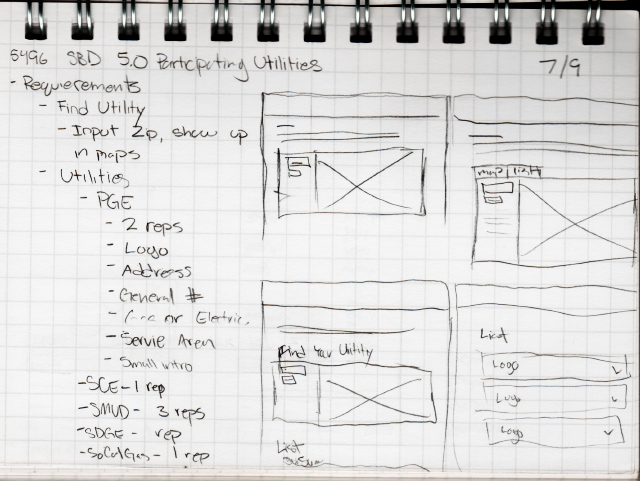 5496 SBD 5.0 Participating Utilities
7/9
- Requierements
- Find Utility
- Input Zip, show up
in maps
- Utilities
- PGE
- 2 reps
- Logo
- Address
- General #
- Gas or Electric.
- Servie Area
- Small intro
- SCE - 1 rep
- SMUD - 3 reps
- SDGE - rep
- SoCalGas - 1 rep
map list
Find Your Utility
List
List
Logo
Logo
Logo